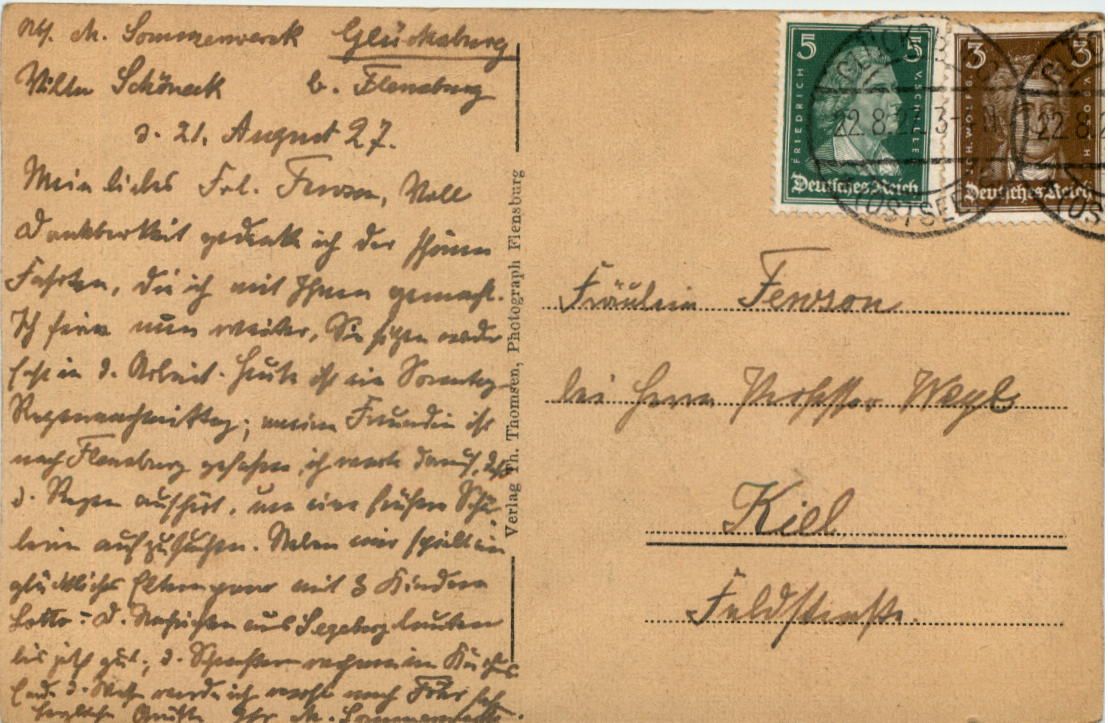 Abs. M. Sommerwerck Glücksburg
Villa Schöneck b. Flensburg
d. 21. August 27.
Mein liebes Frl. Fewson, Voll
Dankbarkeit gedenke ich der schönen
Fahrten, die ich mit Ihnen gemacht.
Ich feire nun weiter, Sie sitzen wieder
fest in d. Arbeit. Heute ist ein Sonntag
Regennachmittag; meine Freundin ist
nach Flensburg gefahren, ich warte darauf, daß
d. Regen aufhört, um eine frühere Schü-
lerin aufzusuchen. Neben mir spielt ein
glückliches Elternpaar mit 3 Kindern
Lotto - d. Nachrichten aus Segeberg lauten
bis jetzt gut; d. Schwester
Ende d. Woche werde ich wohl nach Föhr
herzliche Grüße Ihr M. Sommerwerck.
Verlag Th. Thomsen, Photograph Flensburg
5 5
FRIEDRICH V. SCHILLER
Deutsches Reich
3 3
V. GOETHE
JOH. WOLFG.
Deutsches Reich
GLÜCKSBURG
22.8.27. 3-
(OSTSEE)
22.8.2
(OS
Fräulein Fewson
bei Herrn Professor Weyl
Kiel
Feldstraße.